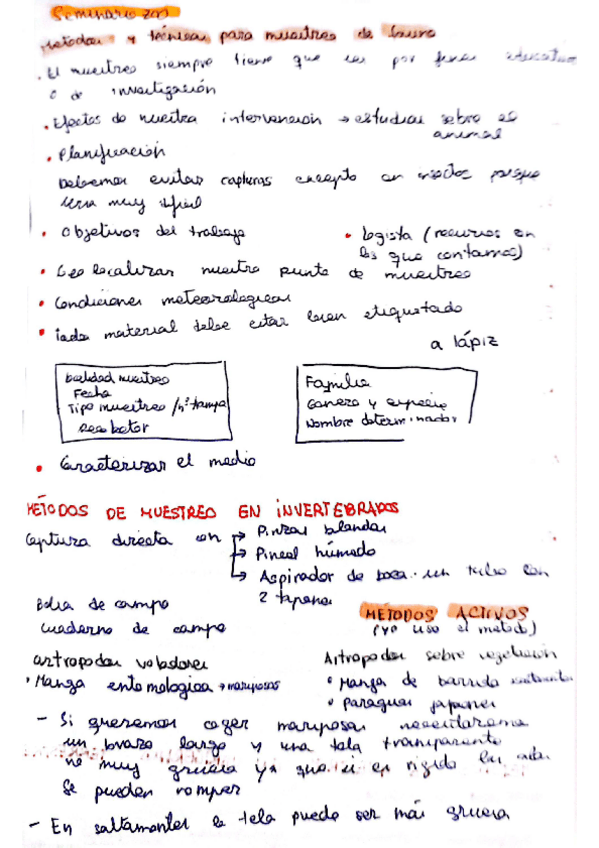 Seminario zoo
Métodos y técnicas para muestreo de fauna
. El muestreo siempre tiene que ser por fines educativos
o de investigación
. Efectos de nuestra intervención → estudiar sobre el
animal
. Planificación
Debemos evitar capturas excepto en insectos porque
sería muy difícil
• Objetivos del trabajo
• logista (recursos con
los que contamos)
• Geolocalizar nuestro punto de muestreo
• Condiciones meteorologicas
• Todo material debe estar bien etiquetado
a lápiz
Localidad muestreo
Fecha
Tipo muestreo /nº trampa
Recolector
Familia
Genero y especie
Nombre determinador
• Caracterizar el medio
MÉTODOS DE MUESTREO EN INVERTEBRADOS
Captura directa con → Pinzas blandas
→ Pincel húmedo
→ Aspirador de boca. un tubo con
2 tapones
Bolsa de campo
cuaderno de campo
METODOS ACTIVOS
(yo uso el metodo)
artropodos voladores
• Manga entomologica → mariposas
Artropodos sobre vegetación
• Manga de barrido
• Paraguas japones
- Si queremos coger mariposas necesitaremos
un brazo largo y una tela transparente
no muy gruesa ya que si es rigido las alas
se pueden romper
- En saltamontes la tela puede ser más gruesa